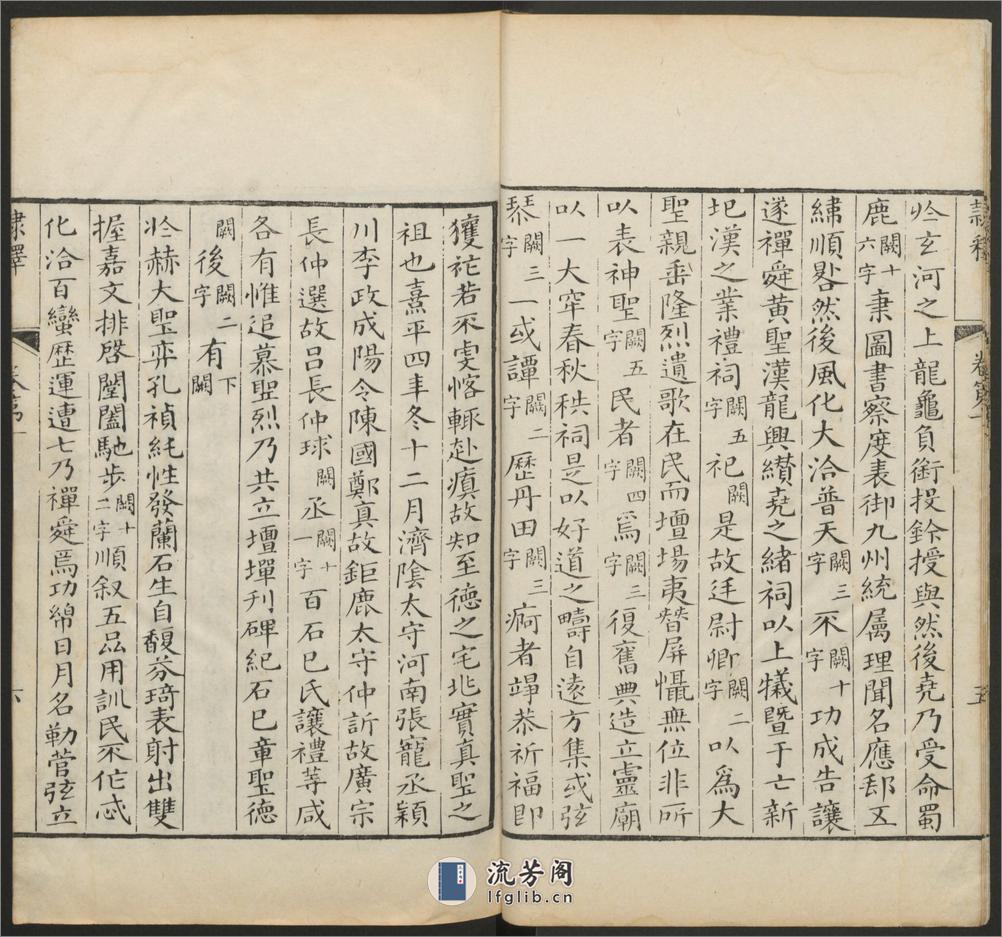 隸釋 卷第一 五
於玄河之上龍龜負銜投鈐授與然後堯乃受命蜀
鹿闕十六字秉圖書察度表御九州統属理聞名應郄五
繡順畧然後風化大洽普天闕三字不闕十字功成告讓
遂禪舜黃聖漢龍興纉堯之緒祠以上犧曁于亡新
圯漢之業禮祠闕五字祀闕是故廷尉卿闕二字以為大
聖親垂隆烈遺歌在民而壇場夷替屏懾無位非所
以表神聖闕五字民者闕四字為闕三字復舊典造立靈廟
以一大窂春秋秩祠是以好道之疇自遠方集或弦
琹闕三字一或譚闕二字歷丹田闕三字痾者竫恭祈福即
獲祚若不虔恪輒赴瘨故知至德之宅兆實真聖之
祖也熹平四年冬十二月濟陰太守河南張寵丞潁
川李政成陽令陳國鄭真故鉅鹿太守仲訢故廣宗
長仲選故吕長仲球闕丞闕十一字百石巳氏讓禮等咸
各有惟追慕聖烈乃共立壇墠刋碑紀石巳章聖德
闕後闕二字有下闕
於赫大聖弈孔禎純性發蘭石生自馥芬琦表射出雙
握嘉文排啓闓闔馳步闕十二字順叙五品用訓民不作忒
化洽百蠻歷運遭七乃禪舜焉功綿日月名勒管弦立
隸釋 卷第一 六
流芳阁
lfglib.cn